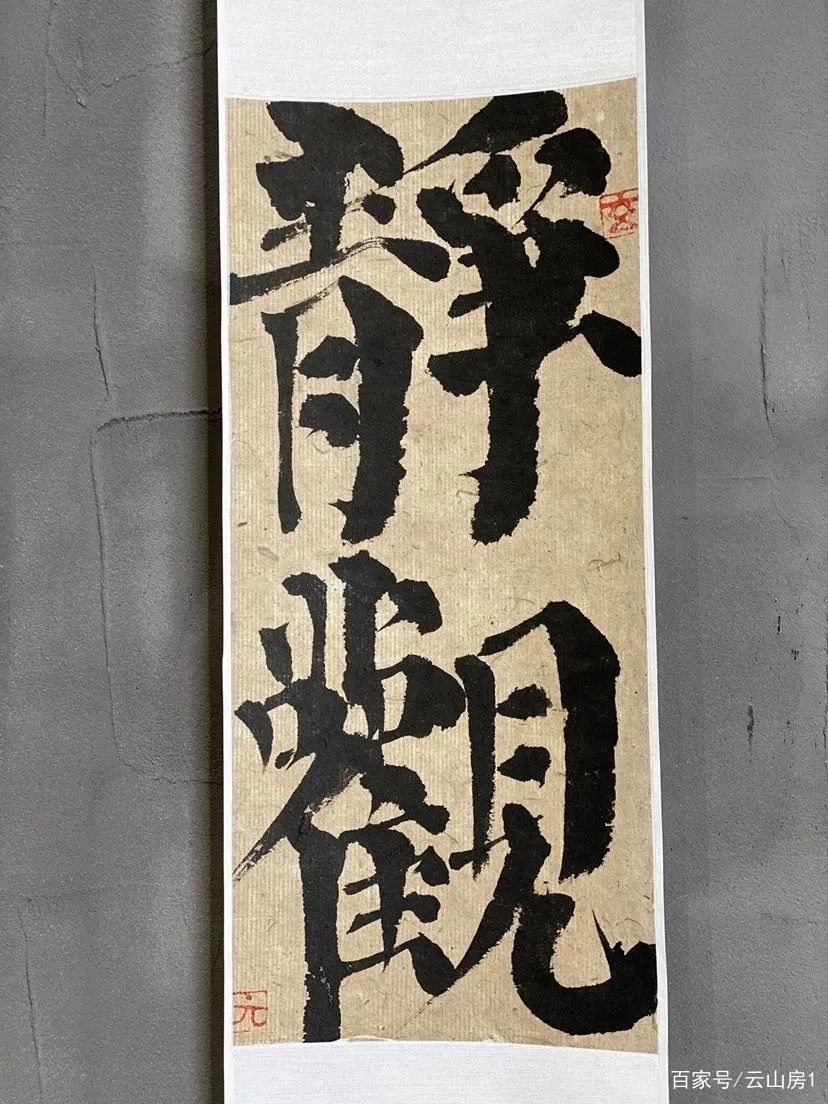 靜
觀
百家号/云山房1